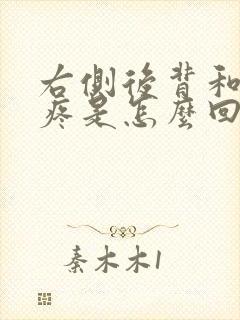 右侧後背和
疼是怎麼回
秦木木1